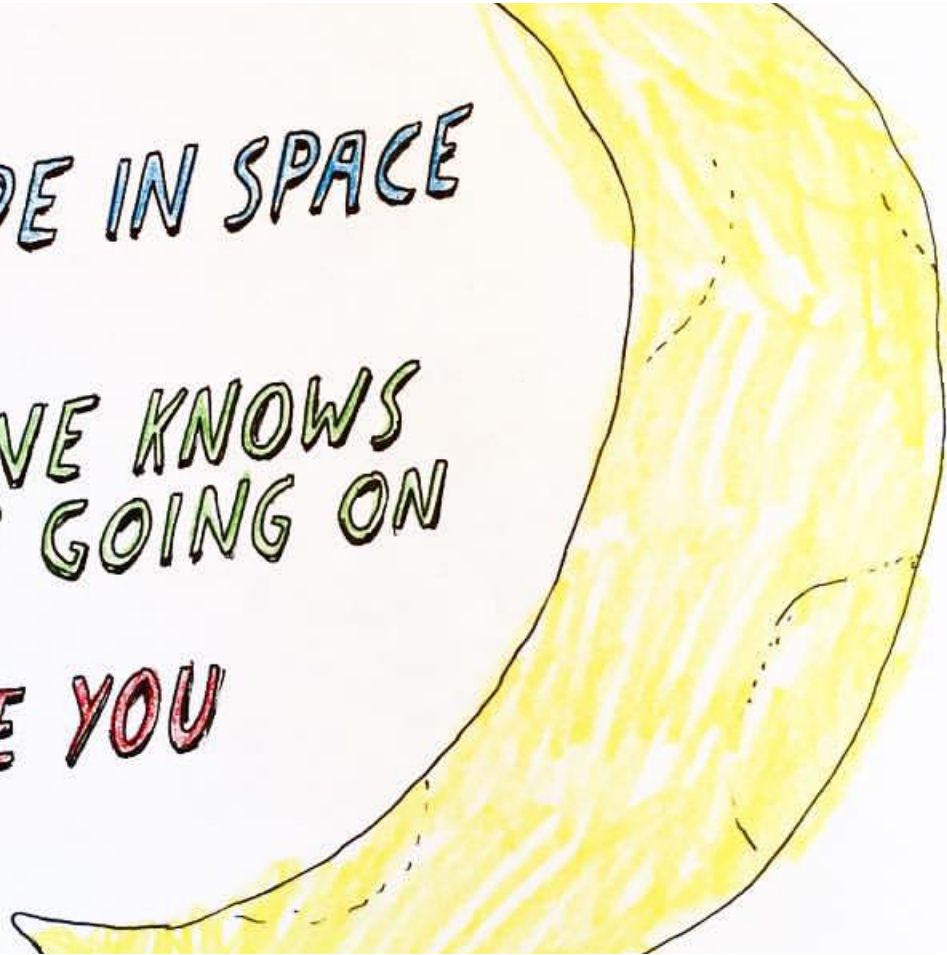 DE IN SPACE
NE KNOWS
GOING ON
E YOU